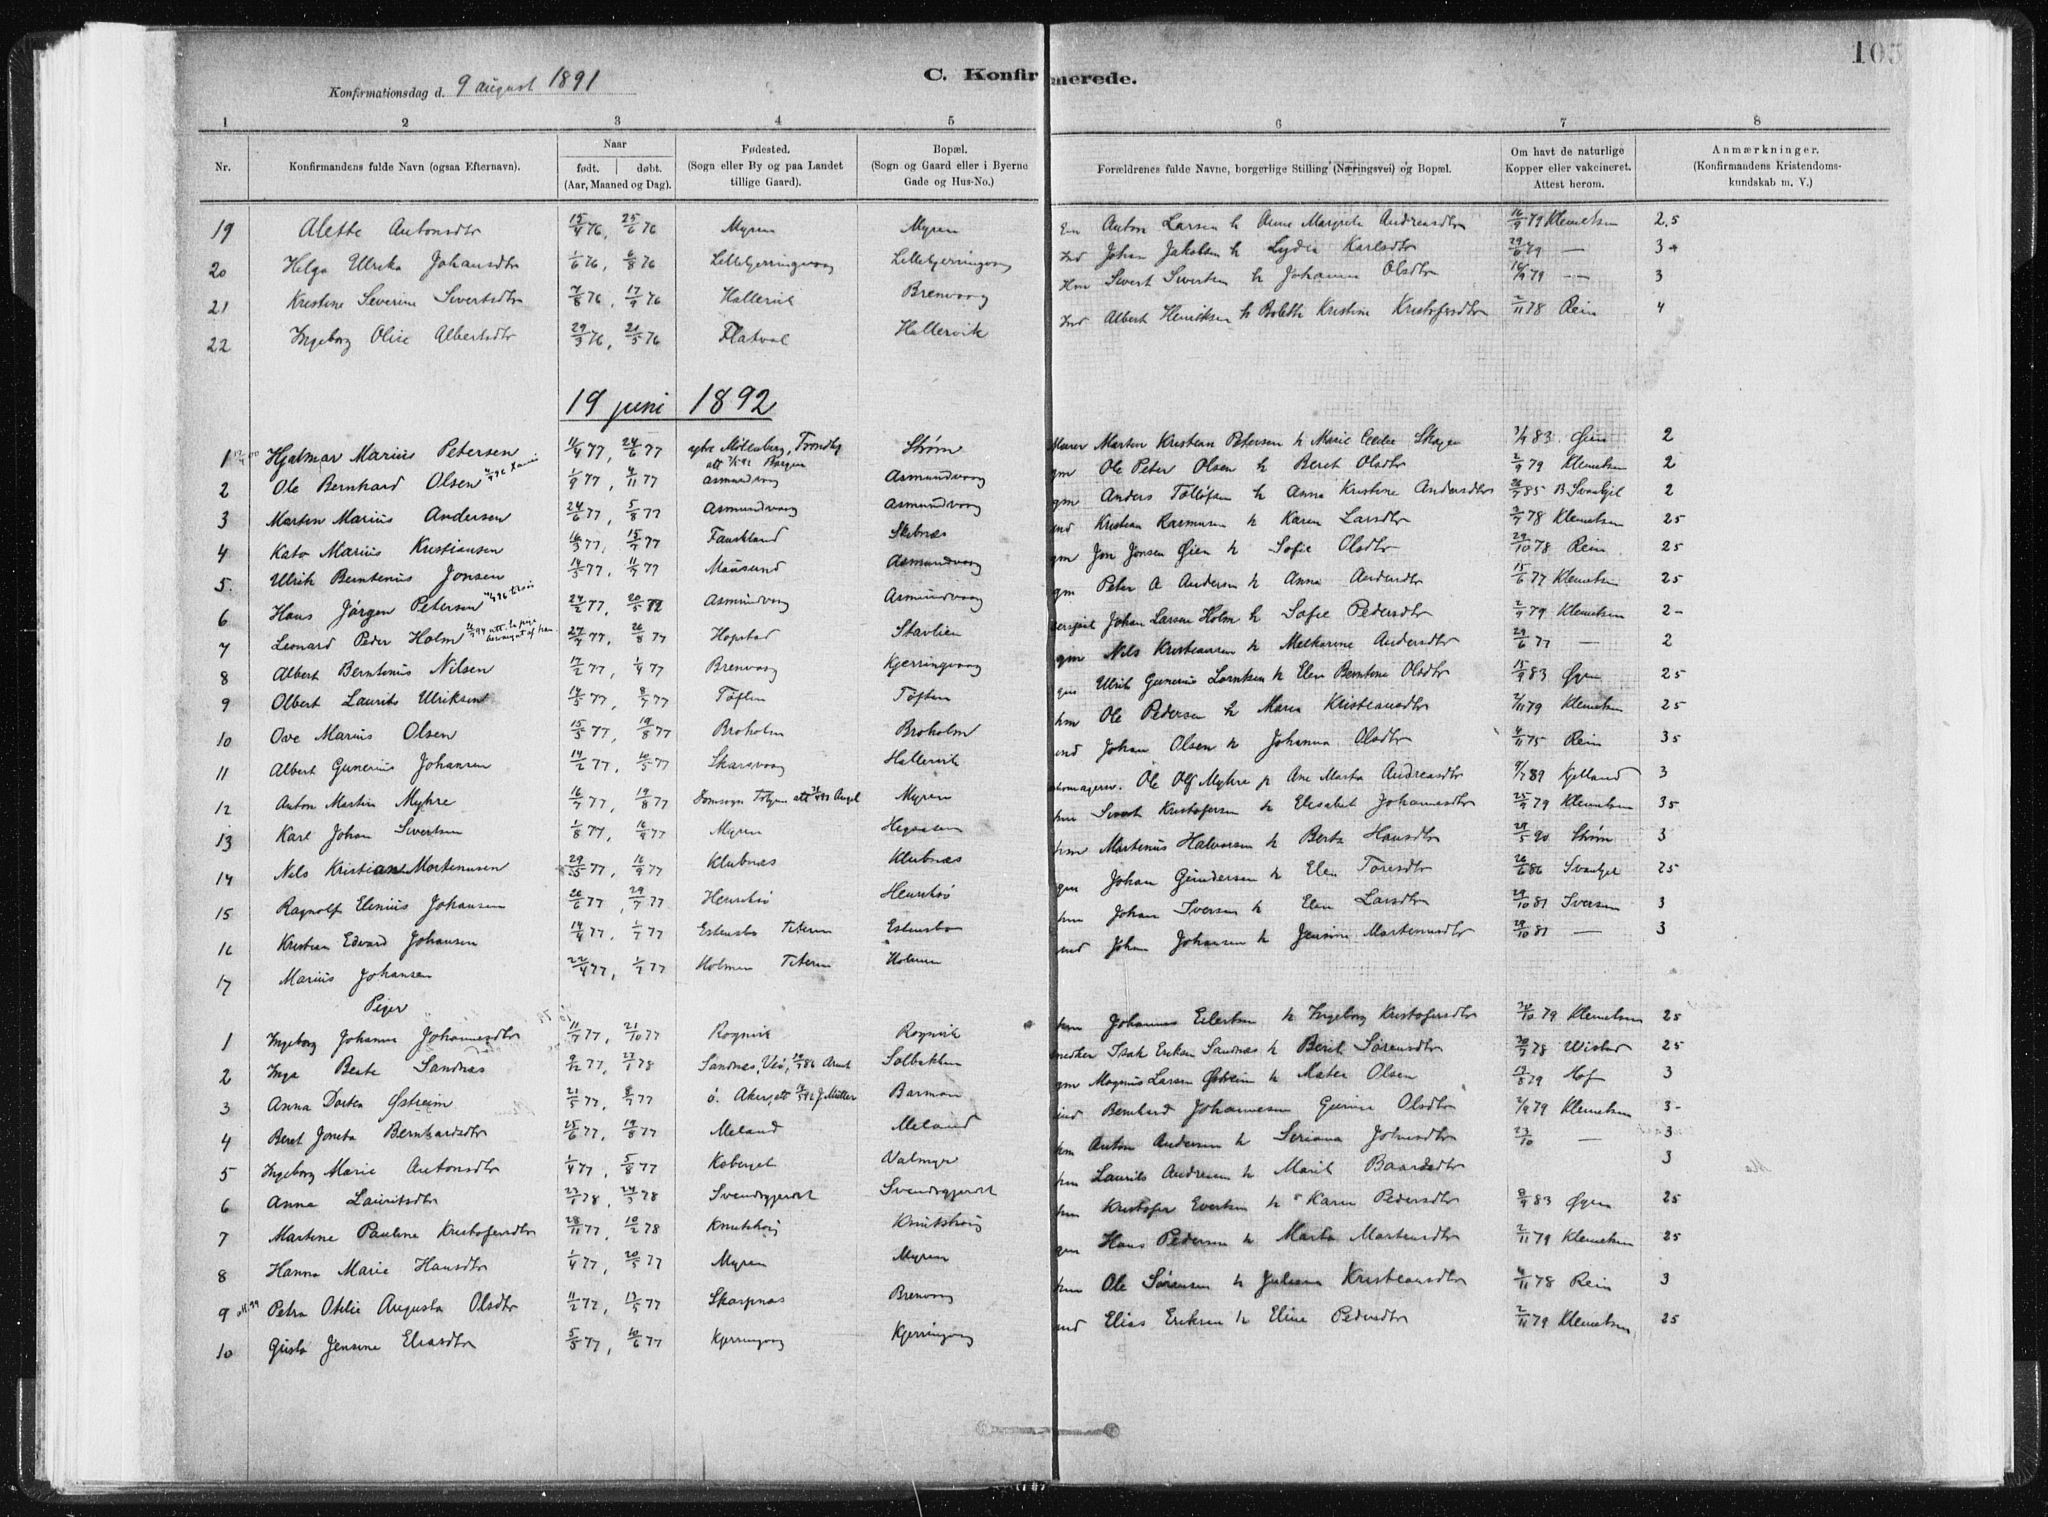 105
C. Konfirmerede.
Konfirmationsdag d. 9 august 1891
1 2 3 4 5 6 7 8
Nr. Konfirmandens fulde Navn (ogsaa Efternavn). Naar født. døbt. (Aar, Maaned og Dag). Fødested. (Sogn eller By og paa Landet tillige Gaard). Bopæl. (Sogn og Gaard eller i Byerne Gade og Hus-No.) Forældrenes fulde Navne, borgerlige Stilling (Næringsvei) og Bopæl. Om havt de naturlige Kopper eller vakcineret. Attest herom. Anmærkninger. (Konfirmandens Kristendomskundskab m. V.)
19 Alette Antonsdtr 15/4 76, 25/6 76 Myren Myren Anton Larsen h Anne Margrete Andreasdtr 16/9 79 Klemetsen 2,5
20 Helga Ulrika Johansdtr 1/6 76, 6/8 76 Lillekjerringvaag Lillekjerringvaag Ind Johan Jakobsen h Lydia Karlsdtr 29/6 79 — 3
21 Kristine Severine Sivertsdtr 7/8 76, 17/9 76 Hallervik Brenvaag Hm Sivert Sivertsen h Johanna Olsdtr 16/9 79 — 3
22 Ingeborg Olise Albertsdtr 29/3 76, 21/5 76 Flatval Hallervik Ind Albert Henriksen h Bolette Kristine Kristofersdtr 2/11 78 Rein 4
19 juni 1892
1 Hjalmar Marius Petersen 11/4 77, 24/6 77 Møllenberg, Trondhj Strøm Murer Marten Kristian Petersen h Marie 7/9 83 Øien 2
2 Ole Bernhard Olsen 1/9 77, 4/11 77 Asmundvaag Asmundvaag gm Ole Peter Olsen h Beret Olsdtr 2/9 79 Klemetsen 2
3 Marten Marius Andersen 24/6 77, 5/8 77 Asmundvaag Asmundvaag gm Anders Tollefsen h Anna Kristine Andersdtr 26/7 85 B Svankjel 2
4 Kato Marius Kristiansen 16/3 77, 15/7 77 Fauskland Skibnæs ind Kristian Rasmusen h Karen Larsdtr 3/7 78 Klemetsen 25
5. Ulrik Berntenius Jonsen 14/3 77, 11/4 77 Mausund Asmundvaag gm Jon Jonsen Øien h Sofie Olsdtr 29/10 78 Rein 25
6 Hans Jørgen Petersen 24/2 77, 20/5 77 Asmundvaag Asmundvaag gm Peter A Andersen h Anna Andersdtr 15/6 77 Klemetsen 25
7 Leonard Peder Holm 27/7 77, 26/8 77 Hopstad Stavlien Johan Larsen Holm h Sofie Pedersdtr 2/9 79 Klemetsen 2-
8 Albert Berntenius Nilsen 17/2 77, 1/4 77 Brenvaag Kjerringvaag gm Nils Kristiansen h Melkarine Andersdtr 29/6 77 — 2
9 Olbert Laurits Ulriksen 14/5 77, 8/7 77 Tøften Tøften gm Ulrik Gunerius Lorntsen h Elen Berntine Olsdtr 15/9 83 Øyen 25
10 Ove Marius Olsen 15/5 77, 19/8 77 Broholm Broholm hm Ole Pedersen h Maren Kristiansdtr 2/11 79 Klemetsen 25
11 Albert Gunerius Johansen 14/2 77, 10/5 77 Skarsvaag Hallervik ind Johan Olsen h Johanna Olsdtr 4/11 75 Rein 35
12 Anton Martin Myhre 16/7 77, 19/8 77 Domsogn Myren Skomagersv. Ole Olss Myhre h Ane Marta Andreasdtr 9/7 89 Kjelland 3
13 Karl Johan Sivertsen 1/8 77, 16/9 77 Myren hm Sivert Kristofersen h Elisabet Johannesdtr 25/9 79 Klemetsen 35
14 Nils Kristian Mortenusen 29/5 77, 16/9 77 Klubnæs Klubnæs hm Martenius Halvorsen h Berta Hansdtr 29/5 90 Strøm 3
15 Ragnolf Elenius Johansen 26/6 77, 29/7 77 Henrikø Henrikø gm Johan Gundersen h Elen Toresdtr 26/6 86 Svankjel 25
16 Kristian Edvard Johansen 14/4 77, 1/7 77 Estensbo Titern Estensbo hm Johan Iversen h Elen Larsdtr 29/10 81 Iversen 3
17 Marius Johansen 22/4 77, 1/7 77 Holmen Titern Holmen ind Johan Johansen h Jensine Martenusdtr 29/10 81 — 3
Piger
1 Ingeborg Johanna Johannesdtr 11/9 77, 21/10 77 Rognvik Rognvik hm Johannes Eilertsen h Ingeborg Kristofersdtr 30/10 79 Klemetsen 25
2 Inga Beate Sandnæs 9/12 77, 27/1 78 Sandnæs, Veø, Solbakken snedker Isak Eriksen Sandnæs h Berit Sørensdtr 30/7 78 25
3 Anna Dortea Østreim 21/5 77, 8/7 77 ø. Aker, Müller Barman gm Magnus Larsen Østreim h Mater Olsen 17/8 79 Hof 3
4 Beret Joneta Bernhardsdtr 25/6 77, 19/8 77 Meland Meland ind Bernhard Johannesen Gurine Olsdtr 2/9 79 Klemetsen 3-
5 Ingeborg Marie Antonsdtr 1/4 77, 5/8 77 Valmyr hm Anton Andersen h Seriana Johnsdtr 23/10 — 3
6 Anna Lauritsdtr 23/1 78, 24/3 78 Svendsgjerdet Svendsgjerdet hm Laurits Andresen h Marit Baardsdtr 3
7 Martine Pauline Kristofersdtr 28/11 77, 10/2 78 Knutshaug Knutshaug hm Kristofer Evertsen h Karen Pedersdtr 8/9 83 Øyen 25
8 Hanna Marie Hansdtr 1/4 77, 20/5 77 Myren Myren gm Hans Pedersen h Marta Martensdtr 2/11 79 Klemetsen 25
9 Petra Otelie Augusta Olsdtr 11/2 77, 13/5 77 Skarpnæs Brenvaag hm Ole Sørensen h Juliana Kristiansdtr 4/11 78 Rein 3
10 Gusta Jensine Eliasdtr 5/5 77, 10/6 77 Kjerringvaag Kjerringvaag ind Elias Eriksen h Eline Pedersdtr 2/11 79 Klemetsen 25